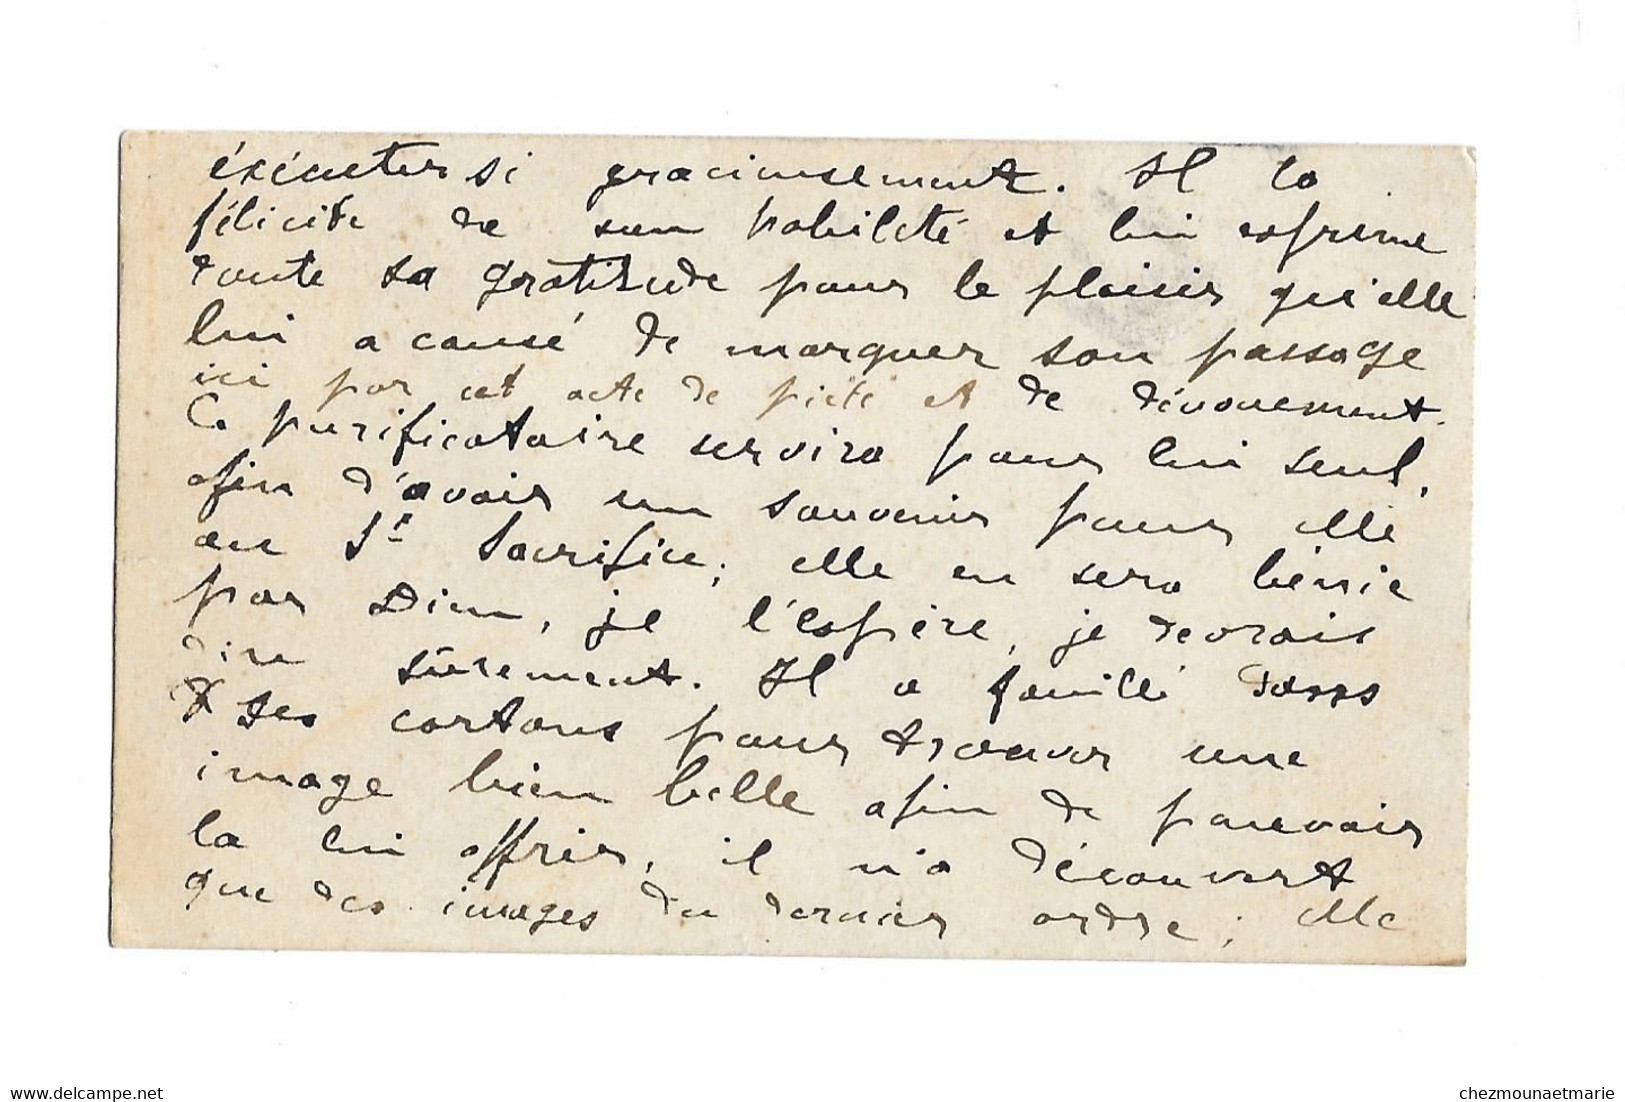 éxécuter si gracieusement. Il la
félicite de son habileté et lui exprime
toute sa gratitude pour le plaisir qu'elle
lui a causé de marquer son passage
ici par cet acte de piété et de dévouement.
Ce purificatoire servira pour lui seul,
afin d'avoir un souvenir pour elle
au St Sacrifice; elle en sera bénie
par Dieu, je l'espère, je devrais
dire sûrement. Il a fouillé dans
ses cartons pour trouver une
image bien belle afin de pouvoir
la lui offrir, il n'a découvert
que des images du dernier ordre; elle
www.delcampe.net
chezmounaetmarie